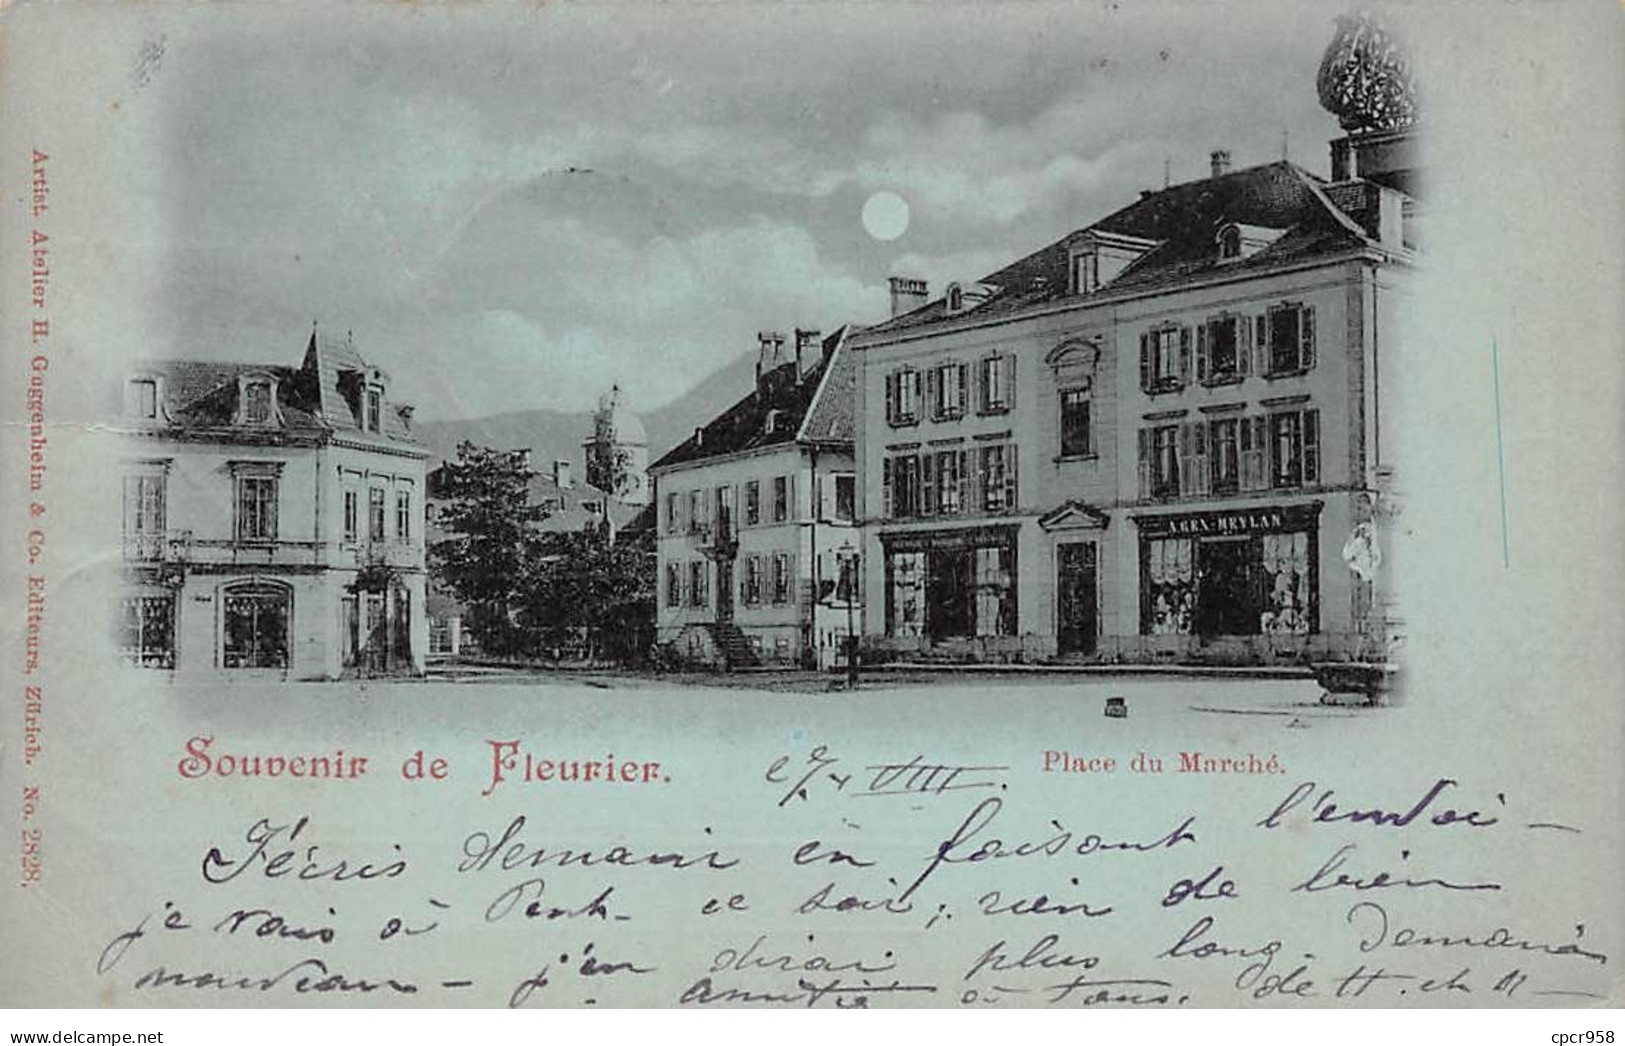 Artist. Atelier H. Guggenheim & Co. Editeurs, Zürich. No. 2828.
A GEX-MEYLAN
Souvenir de Fleurier.
VIII.
Place du Marché.
J'écris demain en faisant l'envoi –
je vais à ce soir; rien de bien
nouveau – j'en dirai plus long. Demain
amitié à tous. de H. et M –
delcampe.net
cpcr958